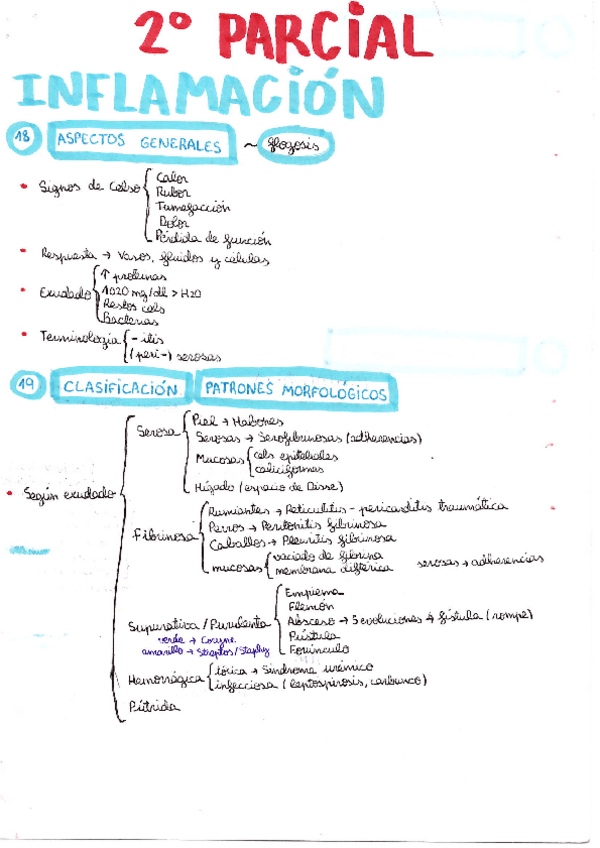 2º PARCIAL
INFLAMACIÓN
18 ASPECTOS GENERALES ~ flogosis
• Signos de Celso
Calor
Rubor
Tumefacción
Dolor
Pérdida de función
• Respuesta → Vasos, fluidos y células
• Exudado
↑ proteínas
1020 mg/dl > H2O
Restos cels
Bacterias
• Terminología
- itis
(peri-) serosas
19 CLASIFICACIÓN PATRONES MORFOLÓGICOS
• Según exudado
Serosa
Piel → Habones
Serosas → Serofibrinosas (adherencias)
Mucosas
cels epiteliales
caliciformes
Hígado (espacio de Disse)
Fibrinosa
Rumiantes → Reticulitis - pericarditis traumática
Perros → Peritonitis fibrinosa
Caballos → Pleuritis fibrinosa
mucosas
vaciado de fibrina
membrana diftérica
serosas → adherencias
Supurativa / Purulenta
verde → Coryne.
amarillo → Streptos/Staphy
Empiema
Flemón
Absceso → 3 evoluciones → fístula (rompe)
Pústula
Forúnculo
Hemorrágica
tóxica → Síndrome urémico
infecciosa (leptospirosis, carbunco)
Pútrida